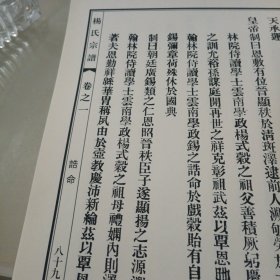 天承運
皇帝制曰恩敷有位晉顯秩於清班澤逮前人
翰林院侍讀學士雲南學政楊式穀之祖父善積厥躬
之訓尤裕孫謀庭開再世之祥克彰祖武茲以覃恩
翰林院侍讀學士雲南學政錫之誥命於戲穀貽有自
錫彌章荷殊休於國典
制曰朝廷廣錫類之仁恩昭晉秩臣子遂顯揚之志源
翰林院侍讀學士雲南學政楊式穀之祖母禮嫻內則
著夫恩勤祥鍾華冑稱夙由於壼教慶沛新綸茲以覃恩
楊氏宗譜 卷之一 誥命 八十九